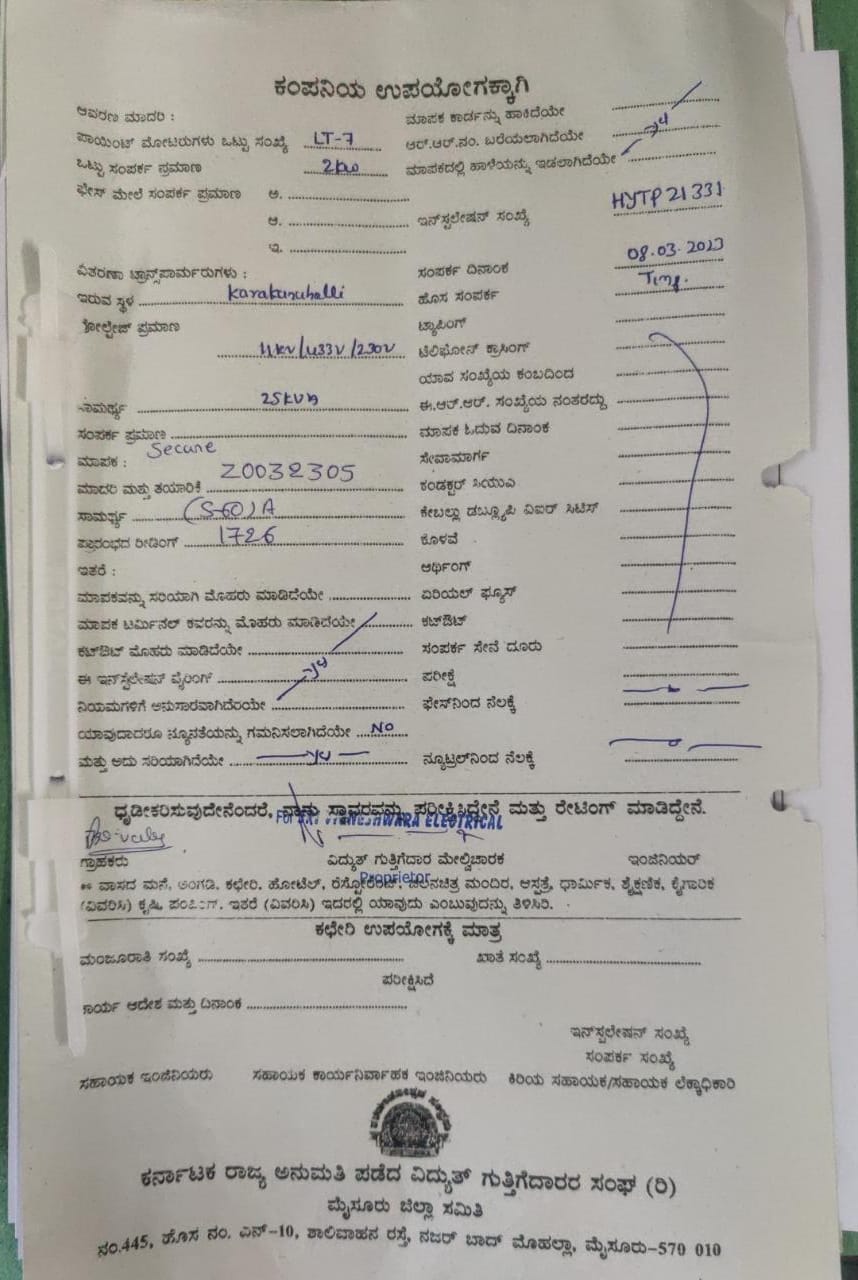 ಕಂಪನಿಯ ಉಪಯೋಗಕ್ಕಾಗಿ
ಆವರಣ ಮಾದರಿ : ಮಾಪಕ ಕಾರ್ಡನ್ನು ಹಾಕಿದೆಯೇ
ಪಾಯಿಂಟ್ ಮೋಟರುಗಳು ಒಟ್ಟು ಸಂಖ್ಯೆ LT-7 ಆರ್.ಆರ್.ನಂ. ಬರೆಯಲಾಗಿದೆಯೇ
ಒಟ್ಟು ಸಂಪರ್ಕ ಪ್ರಮಾಣ 2kw ಮಾಪಕದಲ್ಲಿ ಹಾಳೆಯನ್ನು ಇಡಲಾಗಿದೆಯೇ
ಫೇಸ್ ಮೇಲೆ ಸಂಪರ್ಕ ಪ್ರಮಾಣ ಅ.
ಆ. ಇನ್‌ಸ್ಟಲೇಷನ್ ಸಂಖ್ಯೆ HYTP21331
ಇ.
ವಿತರಣಾ ಟ್ರಾನ್ಸ್‌ಪಾರ್ಮರುಗಳು : ಸಂಪರ್ಕ ದಿನಾಂಕ 08.03.2023
ಇರುವ ಸ್ಥಳ Karakunuhalli ಹೊಸ ಸಂಪರ್ಕ
ಪ್ರಮಾಣ ಟ್ಯಾಪಿಂಗ್
11KV/433V/230V ಟೆಲಿಫೋನ್ ಕ್ರಾಸಿಂಗ್
ಯಾವ ಸಂಖ್ಯೆಯ ಕಂಬದಿಂದ
ಸಾಮರ್ಥ್ಯ 25KVA ಈ.ಆರ್.ಆರ್. ಸಂಖ್ಯೆಯ ನಂತರದ್ದು
ಸಂಪರ್ಕ ಪ್ರಮಾಣ ಮಾಪಕ ಓದುವ ದಿನಾಂಕ
ಮಾಪಕ : Secure ಸೇವಾಮಾರ್ಗ
ಮಾದರಿ ಮತ್ತು ತಯಾರಿಕೆ Z0032305 ಕಂಡಕ್ಟರ್ ಸಿಯುಎ
ಸಾಮರ್ಥ್ಯ (5-60)A ಕೇಬಲ್ಲು ಡಬ್ಲ್ಯೂಪಿ ವಿಐರ್ ಸಿಟಿಸ್
ಪ್ರಾರಂಭದ ರೀಡಿಂಗ್ 1726 ಕೊಳವೆ
ಇತರೆ : ಆರ್ಥಿಂಗ್
ಮಾಪಕವನ್ನು ಸರಿಯಾಗಿ ಮೊಹರು ಮಾಡಿದೆಯೇ ಏರಿಯಲ್ ಫ್ಯೂಸ್
ಮಾಪಕ ಟರ್ಮಿನಲ್ ಕವರನ್ನು ಮೊಹರು ಮಾಡಿದೆಯೇ ಕಟ್‌ಔಟ್
ಕಟ್‌ಔಟ್ ಮೊಹರು ಮಾಡಿದೆಯೇ ಸಂಪರ್ಕ ಸೇನೆ ದೂರು
ಈ ಇನ್‌ಸ್ಟಲೇಷನ್ ವೈರಿಂಗ್ ಪರೀಕ್ಷೆ
ನಿಯಮಗಳಿಗೆ ಅನುಸಾರವಾಗಿದೆರಯೇ ಫೇಸ್‌ನಿಂದ ನೆಲಕ್ಕೆ
ಯಾವುದಾದರೂ ನ್ಯೂನತೆಯನ್ನು ಗಮನಿಸಲಾಗಿದೆಯೇ NO
ಮತ್ತು ಅದು ಸರಿಯಾಗಿದೆಯೇ ನ್ಯೂಟ್ರಲ್‌ನಿಂದ ನೆಲಕ್ಕೆ
ಧೃಡೀಕರಿಸುವುದೇನೆಂದರೆ, ನಾನು ಸ್ಥಾವರವನ್ನು ಪರೀಕ್ಷಿಸಿದ್ದೇನೆ ಮತ್ತು ರೇಟಿಂಗ್ ಮಾಡಿದ್ದೇನೆ.
ELECTRICAL
ಗ್ರಾಹಕರು ವಿದ್ಯುತ್ ಗುತ್ತಿಗೆದಾರ ಮೇಲ್ವಿಚಾರಕ ಇಂಜಿನಿಯರ್
Proprietor
** ವಾಸದ ಮನೆ, ಅಂಗಡಿ. ಕಛೇರಿ. ಹೋಟೆಲ್, ಮಂದಿರ, ಆಸ್ಪತ್ರೆ, ಧಾರ್ಮಿಕ, ಶೈಕ್ಷಣಿಕ, ಕೈಗಾರಿಕ
(ವಿವರಿಸಿ) ಕೃಷಿ, ಇತರೆ (ವಿವರಿಸಿ) ಇದರಲ್ಲಿ ಯಾವುದು ಎಂಬುವುದನ್ನು ತಿಳಿಸಿರಿ.
ಕಛೇರಿ ಉಪಯೋಗಕ್ಕೆ ಮಾತ್ರ
ಮಂಜೂರಾತಿ ಸಂಖ್ಯೆ ಖಾತೆ ಸಂಖ್ಯೆ
ಪರೀಕ್ಷಿಸಿದೆ
ಕಾರ್ಯ ಆದೇಶ ಮತ್ತು ದಿನಾಂಕ
ಇನ್‌ಸ್ಟಲೇಷನ್ ಸಂಖ್ಯೆ
ಸಂಪರ್ಕ ಸಂಖ್ಯೆ
ಸಹಾಯಕ ಇಂಜಿನಿಯರು ಸಹಾಯಕ ಕಾರ್ಯನಿರ್ವಾಹಕ ಇಂಜಿನಿಯರು ಕಿರಿಯ ಸಹಾಯಕ/ಸಹಾಯಕ ಲೆಕ್ಕಾಧಿಕಾರಿ
ಕರ್ನಾಟಕ ರಾಜ್ಯ ಅನುಮತಿ ಪಡೆದ ವಿದ್ಯುತ್ ಗುತ್ತಿಗೆದಾರರ ಸಂಘ (ರಿ)
ಮೈಸೂರು ಜಿಲ್ಲಾ ಸಮಿತಿ
ನಂ.445, ಹೊಸ ನಂ. ಎನ್-10, ಶಾಲಿವಾಹನ ರಸ್ತೆ, ನಜರ್ ಬಾದ್ ಮೊಹಲ್ಲಾ, ಮೈಸೂರು-570 010